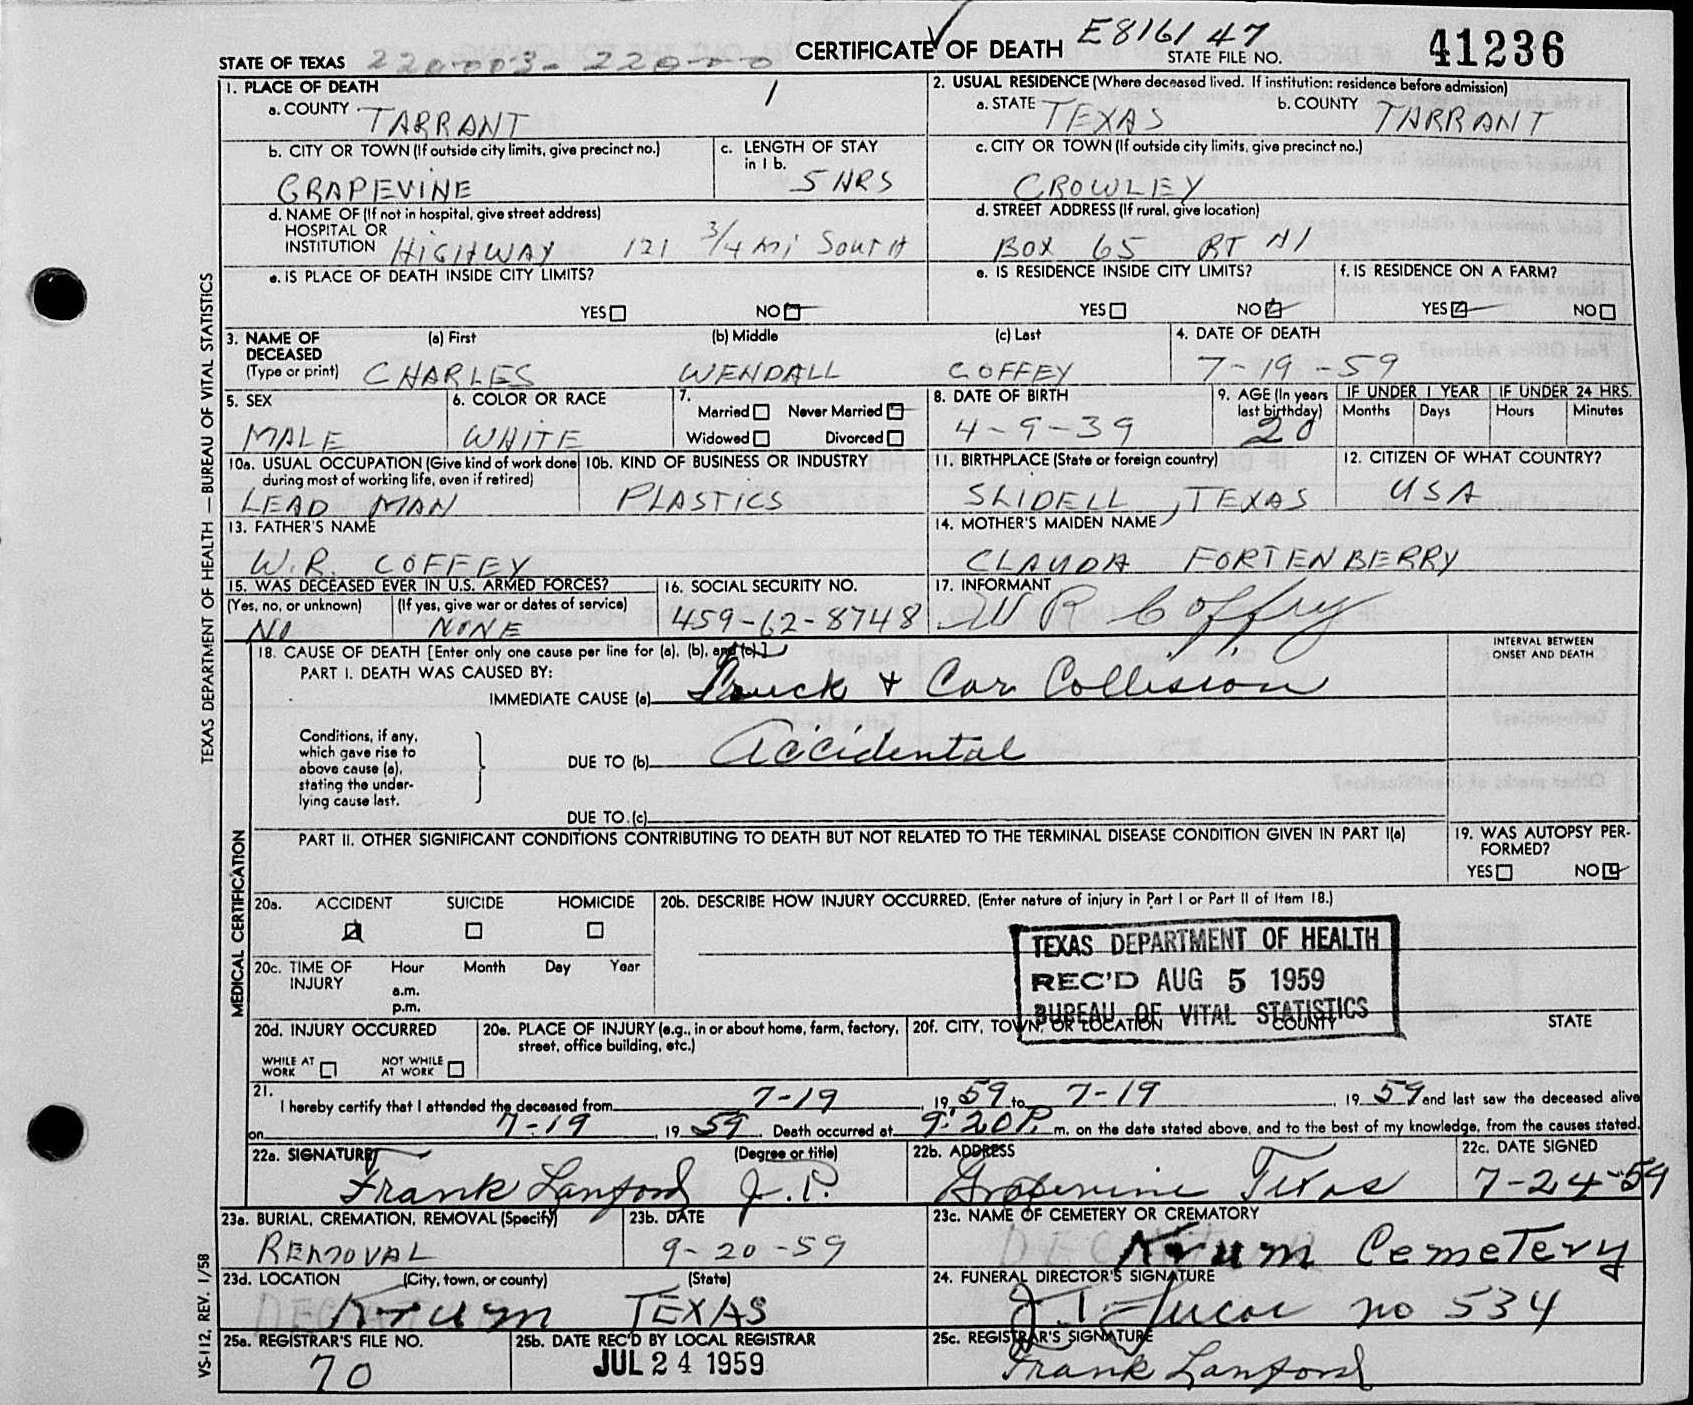 STATE OF TEXAS 220-003- 220-0-0 CERTIFICATE OF DEATH E816147 STATE FILE NO. 41236
1. PLACE OF DEATH 1
a. COUNTY TARRANT
2. USUAL RESIDENCE (Where deceased lived. If institution: residence before admission)
a. STATE TEXAS b. COUNTY TARRANT
b. CITY OR TOWN (If outside city limits, give precinct no.) GRAPEVINE
c. LENGTH OF STAY in 1 b. 5 HRS
c. CITY OR TOWN (If outside city limits, give precinct no.) CROWLEY
d. NAME OF (If not in hospital, give street address)
HOSPITAL OR
INSTITUTION HIGHWAY 121 3/4 MI SOUTH
d. STREET ADDRESS (If rural, give location)
BOX 65 RT #1
e. IS PLACE OF DEATH INSIDE CITY LIMITS?
YES NO
e. IS RESIDENCE INSIDE CITY LIMITS?
YES NO
f. IS RESIDENCE ON A FARM?
YES NO
3. NAME OF DECEASED (Type or print)
(a) First (b) Middle (c) Last
CHARLES WENDALL COFFEY
4. DATE OF DEATH
7-19-59
5. SEX
MALE
6. COLOR OR RACE
WHITE
7. Married Never Married
Widowed Divorced
8. DATE OF BIRTH
4-9-39
9. AGE (In years last birthday)
20
IF UNDER 1 YEAR IF UNDER 24 HRS.
Months Days Hours Minutes
10a. USUAL OCCUPATION (Give kind of work done during most of working life, even if retired)
LEAD MAN
10b. KIND OF BUSINESS OR INDUSTRY
PLASTICS
11. BIRTHPLACE (State or foreign country)
SLIDELL, TEXAS
12. CITIZEN OF WHAT COUNTRY?
USA
13. FATHER'S NAME
W.R. COFFEY
14. MOTHER'S MAIDEN NAME
CLAUDA FORTENBERRY
15. WAS DECEASED EVER IN U.S. ARMED FORCES?
(Yes, no, or unknown) (If yes, give war or dates of service)
NO NONE
16. SOCIAL SECURITY NO.
459-62-8748
17. INFORMANT
W R Coffey
18. CAUSE OF DEATH [Enter only one cause per line for (a), (b), and (c).]
INTERVAL BETWEEN ONSET AND DEATH
PART I. DEATH WAS CAUSED BY:
IMMEDIATE CAUSE (a) Truck & Car Collision
Conditions, if any,
which gave rise to
above cause (a),
stating the under-
lying cause last.
DUE TO (b) Accidental
DUE TO (c)
PART II. OTHER SIGNIFICANT CONDITIONS CONTRIBUTING TO DEATH BUT NOT RELATED TO THE TERMINAL DISEASE CONDITION GIVEN IN PART I(a)
19. WAS AUTOPSY PER-
FORMED?
YES NO
20a. ACCIDENT SUICIDE HOMICIDE
20b. DESCRIBE HOW INJURY OCCURRED. (Enter nature of injury in Part I or Part II of Item 18.)
TEXAS DEPARTMENT OF HEALTH
REC'D AUG 5 1959
BUREAU OF VITAL STATISTICS
20c. TIME OF INJURY Hour Month Day Year
a.m.
p.m.
20d. INJURY OCCURRED
WHILE AT WORK NOT WHILE AT WORK
20e. PLACE OF INJURY (e.g., in or about home, farm, factory, street, office building, etc.)
20f. CITY, TOWN, OR LOCATION COUNTY STATE
21. I hereby certify that I attended the deceased from 7-19, 19 59 to 7-19, 19 59 and last saw the deceased alive
on 7-19, 19 59. Death occurred at 9:20 P. m. on the date stated above, and to the best of my knowledge, from the causes stated.
22a. SIGNATURE (Degree or title)
Frank Lanford J.P.
22b. ADDRESS
Grapevine Texas
22c. DATE SIGNED
7-24-59
23a. BURIAL, CREMATION, REMOVAL (Specify)
REMOVAL
23b. DATE
9-20-59
23c. NAME OF CEMETERY OR CREMATORY
Krum Cemetery
23d. LOCATION (City, town, or county) (State)
Krum TEXAS
24. FUNERAL DIRECTOR'S SIGNATURE
no 534
25a. REGISTRAR'S FILE NO.
70
25b. DATE REC'D BY LOCAL REGISTRAR
JUL 24 1959
25c. REGISTRAR'S SIGNATURE
Frank Lanford
TEXAS DEPARTMENT OF HEALTH — BUREAU OF VITAL STATISTICS
MEDICAL CERTIFICATION
VS-112, REV. 1/58